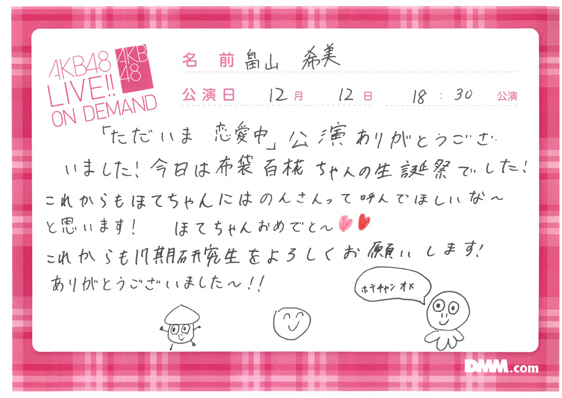 AKB48
LIVE!!
ON DEMAND
AKB
48
名 前 畠山 希美
公演日 12月 12日 18:30 公演
「ただいま 恋愛中」公演ありがとうござ
いました!今日は布袋百椛ちゃんの生誕祭でした!
これからもほてちゃんにはのんさんって呼んでほしいな〜
と思います! ほてちゃんおめでと〜
これからも17期研究生をよろしくお願いします!
ありがとうございました〜!!
ホテチャン オメ
DMM.com